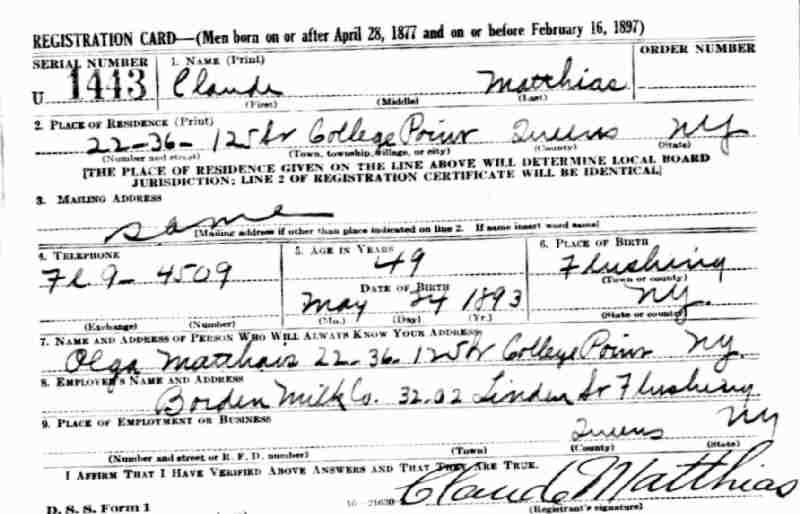 REGISTRATION CARD—(Men born on or after April 28, 1877 and on or before February 16, 1897)
SERIAL NUMBER 1. NAME (Print) ORDER NUMBER
U 1443 Claude Matthias
(First) (Middle) (Last)
2. PLACE OF RESIDENCE (Print)
22-36-125 St College Point Queens NY
(Number and street) (Town, township, village, or city) (County) (State)
[THE PLACE OF RESIDENCE GIVEN ON THE LINE ABOVE WILL DETERMINE LOCAL BOARD
JURISDICTION; LINE 2 OF REGISTRATION CERTIFICATE WILL BE IDENTICAL]
3. MAILING ADDRESS
same
[Mailing address if other than place indicated on line 2. If same insert word same]
4. TELEPHONE 5. AGE IN YEARS 6. PLACE OF BIRTH
Fl. 9-4509 49 Flushing
DATE OF BIRTH (Town or county)
May 24 1893 NY.
(Exchange) (Number) (Mo.) (Day) (Yr.) (State or country)
7. NAME AND ADDRESS OF PERSON WHO WILL ALWAYS KNOW YOUR ADDRESS
Olga Matthais 22-36-125 St College Point NY
8. EMPLOYER'S NAME AND ADDRESS
Borden Milk Co. 32.02 Linden St Flushing
9. PLACE OF EMPLOYMENT OR BUSINESS
Queens NY
(Number and street or R. F. D. number) (Town) (County) (State)
I AFFIRM THAT I HAVE VERIFIED ABOVE ANSWERS AND THAT THEY ARE TRUE.
Claude Matthias
D. S. S. Form 1 (Registrant's signature)